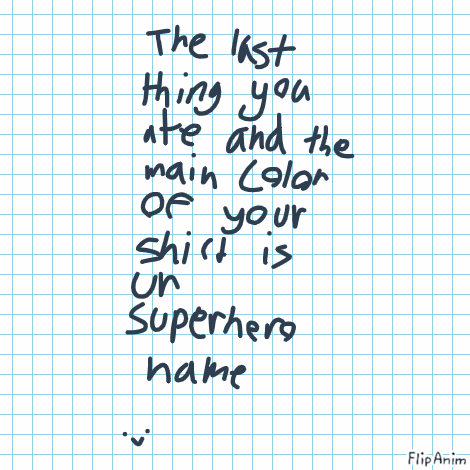 The last
thing you
ate and the
main color
of your
shirt is
ur
superhero
name
:)
FlipAnim